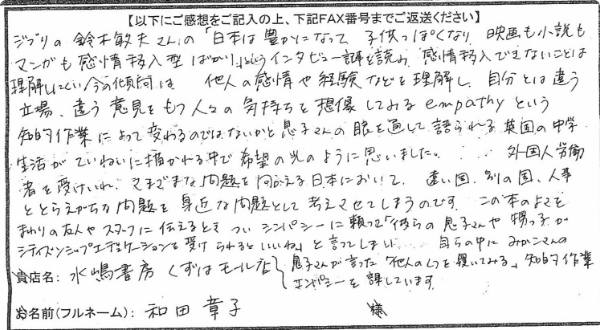 【以下にご感想をご記入の上、下記FAX番号までご返送ください】
ジブリの鈴木敏夫さんの「日本は豊かになって子供っぽくなり、映画も小説も
マンガも感情移入型ばかり」というインタビュー記事を読み、感情移入できないことは
理解しにくい今の傾向は、他人の感情や経験などを理解し、自分とは違う
立場、違う意見をもつ人々の気持ちを想像してみるempathyという
知的作業によって変わるのではないかと息子さんの眼を通して語られる英国の中学
生活がていねいに描かれる中で希望の光のように思いました。 外国人労働
者を受けいれ、さまざまな問題を向かえる日本において、遠い国、別の国、人事
ととらえがちな問題を身近な問題として考えさせてしまうのです。この本のよさを
まわりの友人やスタッフに伝えるとき ついシンパシーに頼って「彼らの息子さんや甥っ子が
シティズンシップエデュケーションを受けられるといいね」と言ってしまい 自らの中にみかこさんの
息子さんが言った「他人のくつを履いてみる」知的作業
エンパシーを課しています。
貴店名:水嶋書房くずはモール店
お名前(フルネーム):和田章子 様